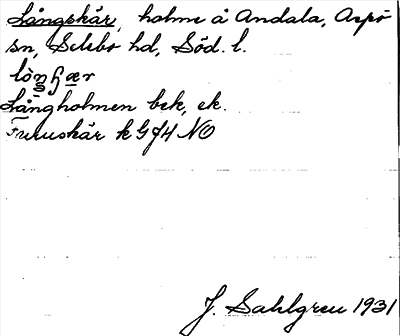 Långskär, holme å Andala, Aspö
sn, Selebo hd, Söd. l.
Långholmen bek, ek.
Furuskär k G J H NO
J. Sahlgren 1931